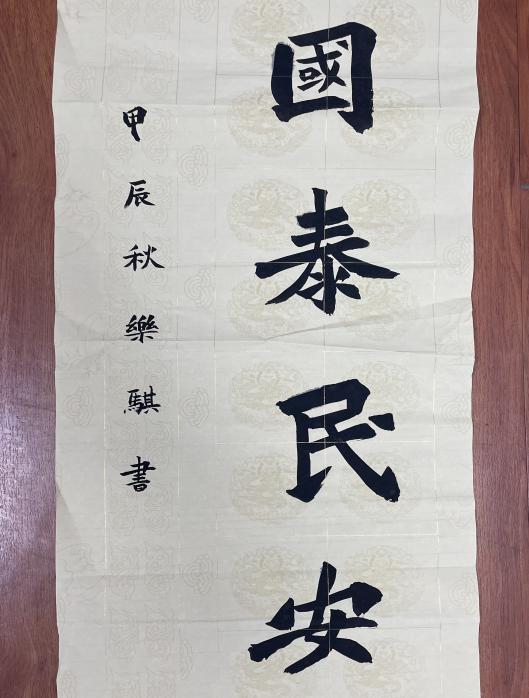 國泰民安
甲辰秋樂騏書